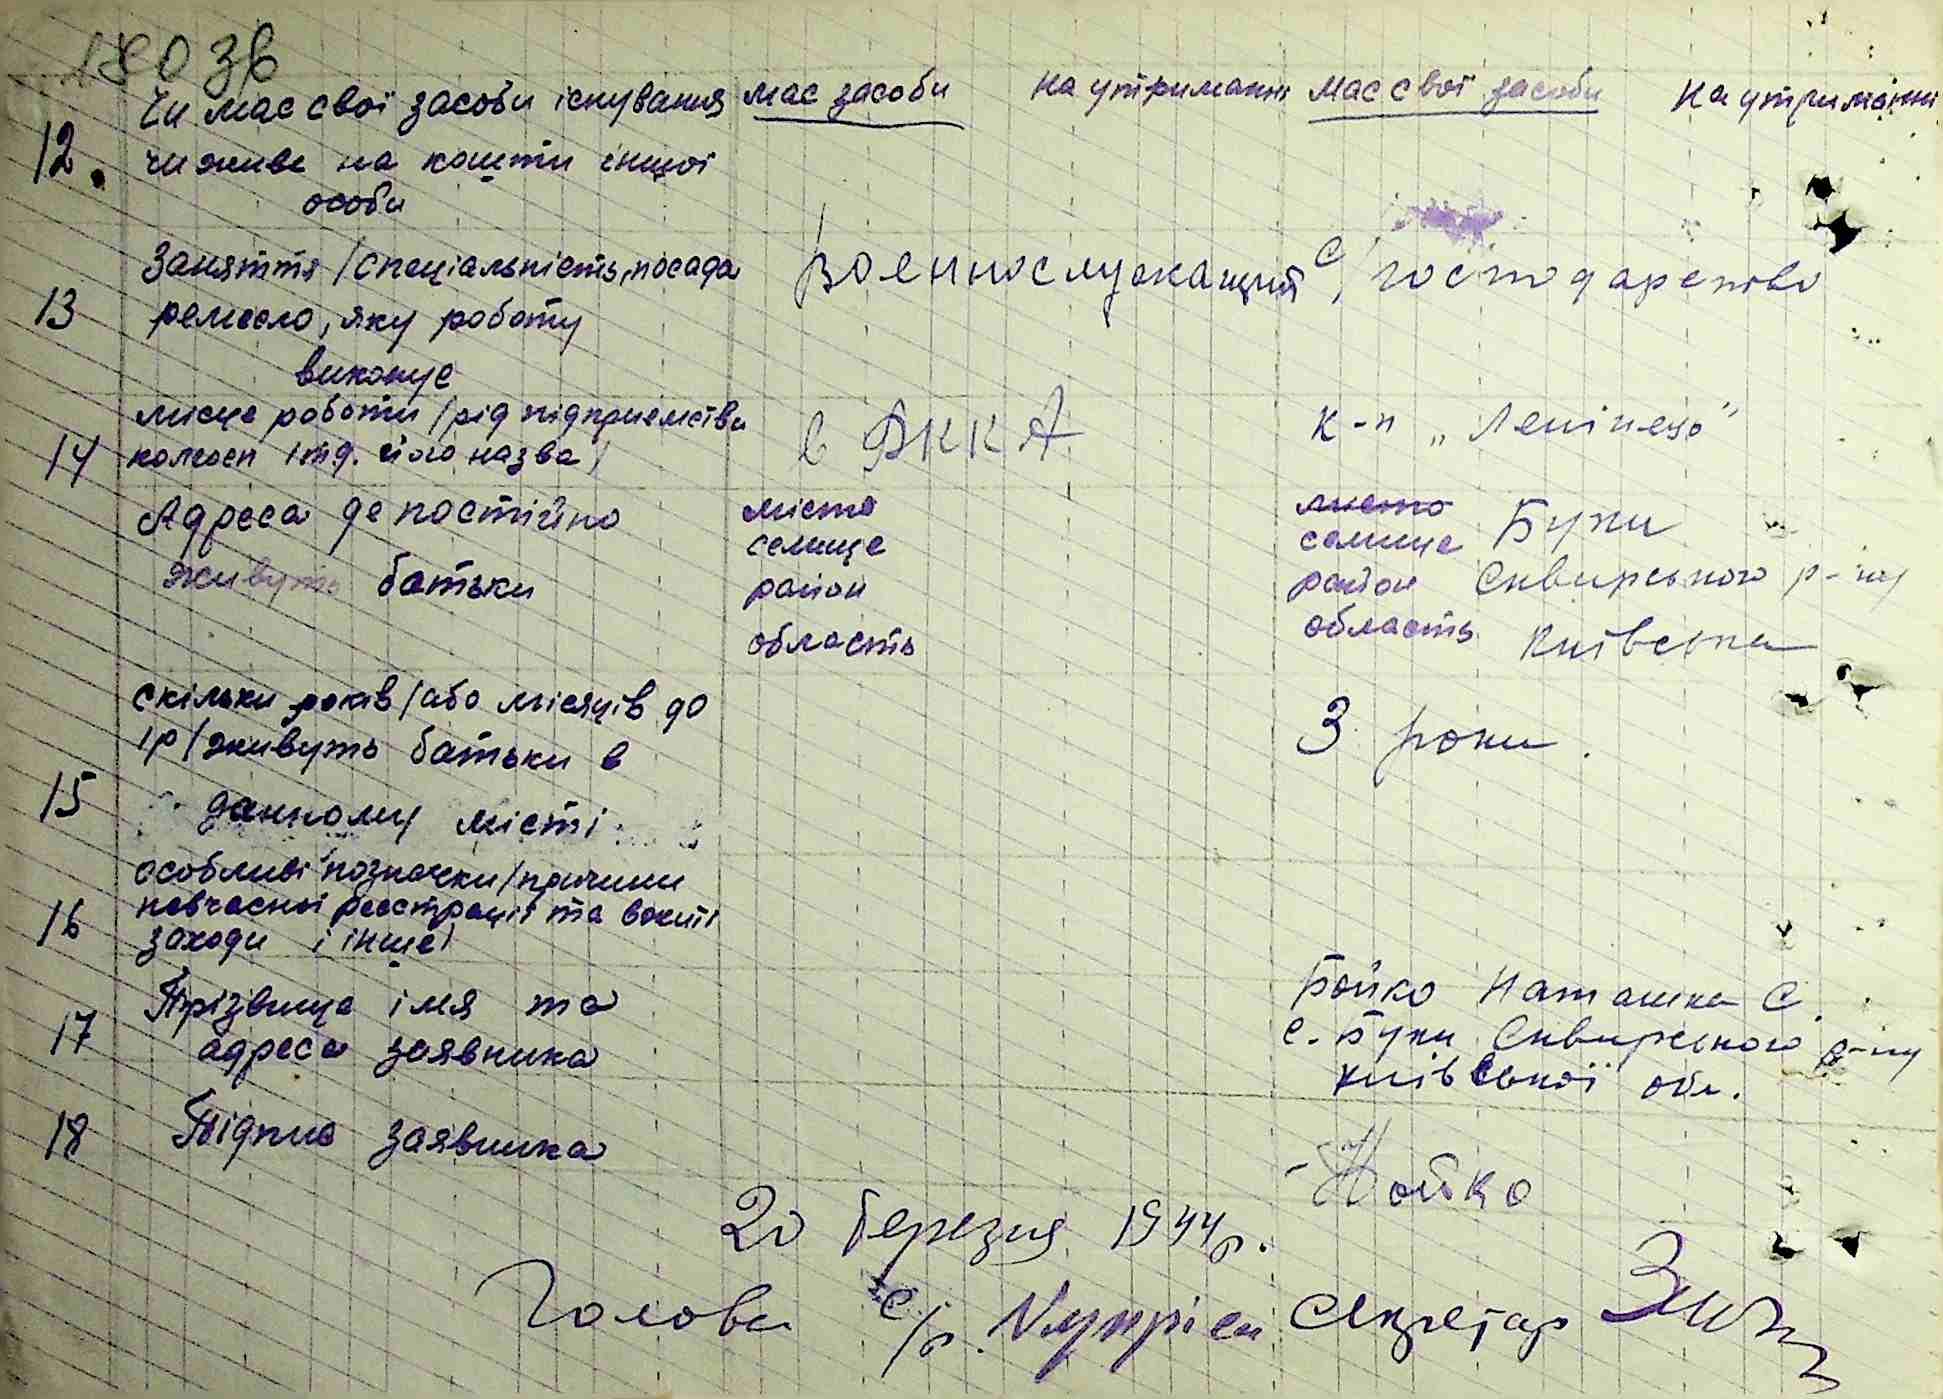 180 зв
Чи має свої засоби існування має засоби на утриманні має свої засоби на утриманні
12. чи живе на кошти іншої
особи
Заняття /спеціальність, посада Военнослужащий с/господарство
13 ремесло, яку роботу
виконує
місце роботи /рід підприємства в РККА к-п „Ленінець"
14 колгосп і т.д. його назва/
Адреса де постійно місто місто Буки
селище селище
живуть батьки район район Сквирського р-ну
область область Київська
скільки років /або місяців до
1р/ живуть батьки в 3 роки.
15 данному місті
особливі позначки /причини
16 невчасної реєстрації та вжиті
заходи і інше/
Прізвище імя та Бойко Наташка С.
17 адреса заявника с. Буки Сквирського р-ну
Київської обл.
18 Підпис заявника Бойко
20 березня 1944 р.
Голова с/р. Секретар